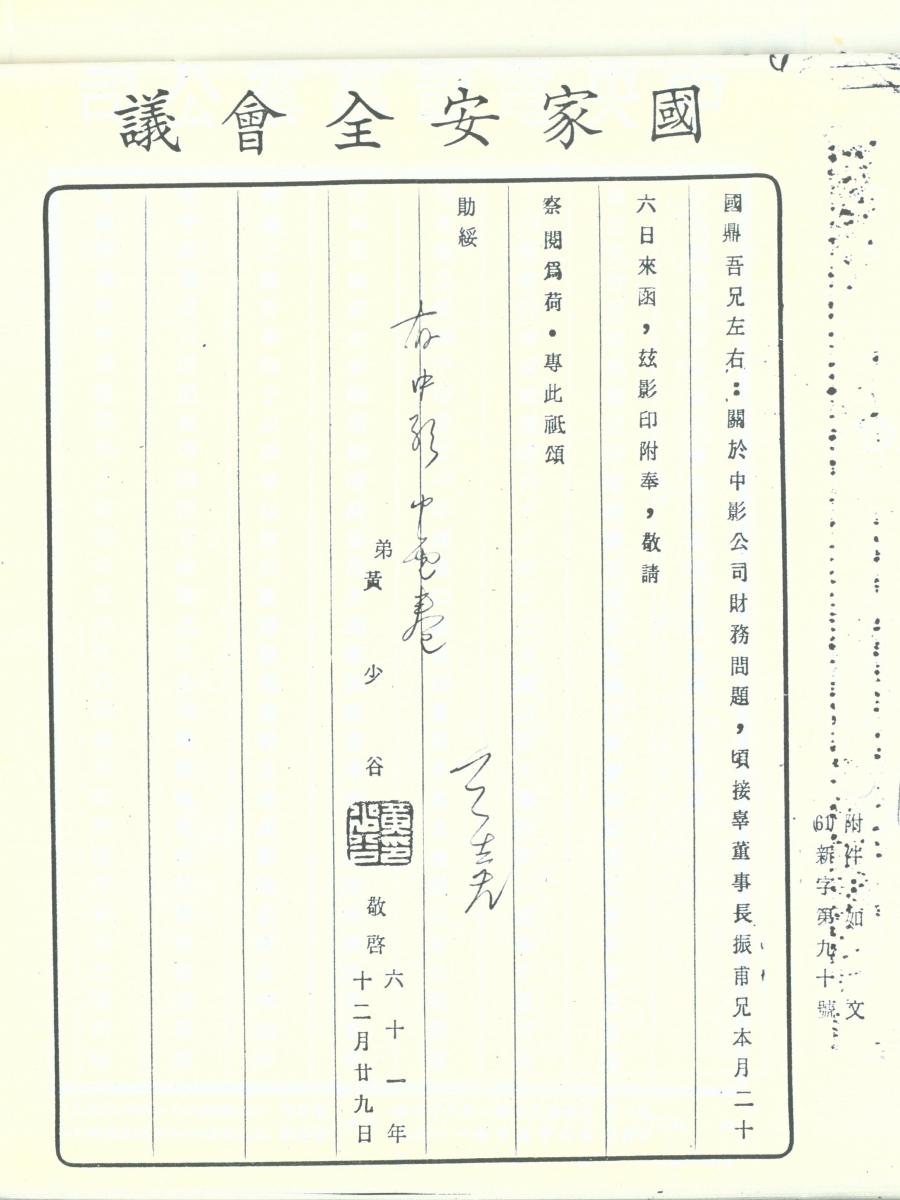 國家安全會議
附件：如文
(61)新字第九十號
國鼎吾兄左右：關於中影公司財務問題，頃接辜董事長振甫兄本月二十
六日來函，茲影印附奉，敬請
察閱為荷。專此祗頌
勛綏
弟黃少谷
黃少谷
敬啓
六十一年
十二月廿九日
存中影